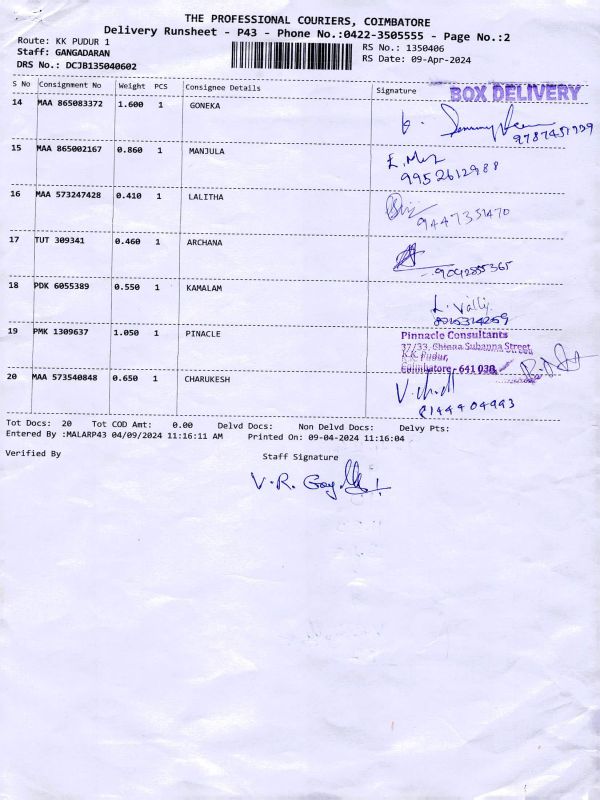 THE PROFESSIONAL COURIERS, COIMBATORE
Delivery Runsheet - P43 - Phone No.:0422-3505555 - Page No.:2
Route: KK PUDUR 1
RS No.: 1350406
Staff: GANGADARAN
RS Date: 09-Apr-2024
DRS No.: DCJB135040602
S No Consignment No Weight PCS Consignee Details Signature
BOX DELIVERY
14 MAA 865083372 1.600 1 GONEKA
9787451939
15 MAA 865002167 0.860 1 MANJULA
9952612988
16 MAA 573247428 0.410 1 LALITHA
9447351470
17 TUT 309341 0.460 1 ARCHANA
9042855365
18 PDK 6055389 0.550 1 KAMALAM
L. Valli
19 PMK 1309637 1.050 1 PINACLE
Pinnacle Consultants
37/33, Chinna Subanna Street,
K.K. Pudur,
Coimbatore - 641 038.
20 MAA 573540848 0.650 1 CHARUKESH
8144404993
Tot Docs: 20 Tot COD Amt: 0.00 Delvd Docs: Non Delvd Docs: Delvy Pts:
Entered By :MALARP43 04/09/2024 11:16:11 AM Printed On: 09-04-2024 11:16:04
Verified By Staff Signature
V.R.